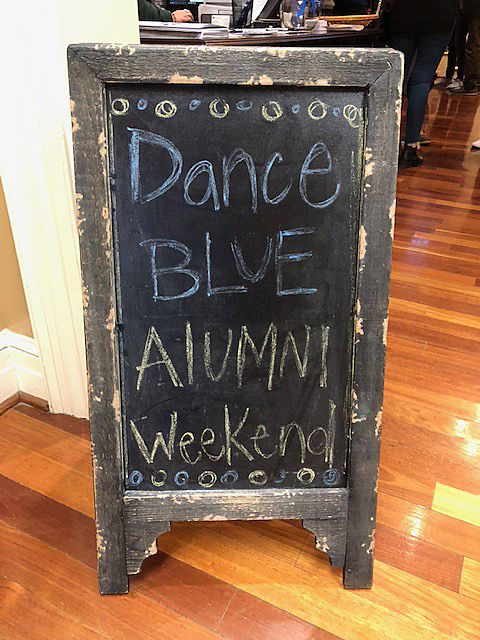 Dance
BLUE
ALUMNI
Weekend